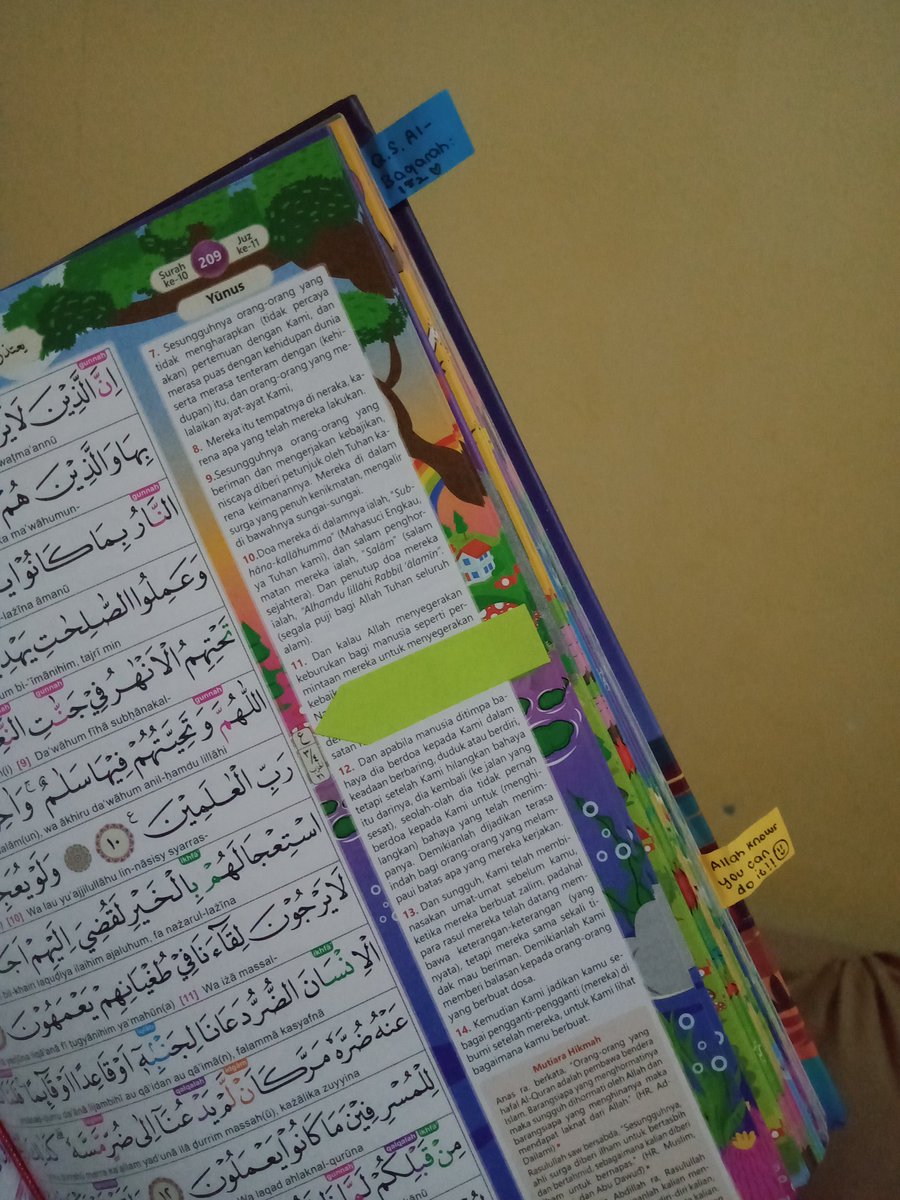 Q.S. Al-
Baqarah:
Surah
ke-10
209
Juz
ke-11
Yūnus
7. Sesungguhnya orang-orang yang
tidak mengharapkan (tidak percaya
akan) pertemuan dengan Kami, dan
merasa puas dengan kehidupan dunia
serta merasa tenteram dengan (kehi-
dupan) itu, dan orang-orang yang me-
lalaikan ayat-ayat Kami,
8. Mereka itu tempatnya di neraka, ka-
rena apa yang telah mereka lakukan.
9.Sesungguhnya orang-orang yang
beriman dan mengerjakan kebajikan,
niscaya diberi petunjuk oleh Tuhan ka-
rena keimanannya. Mereka di dalam
surga yang penuh kenikmatan, mengalir
di bawahnya sungai-sungai.
10.Doa mereka di dalamnya ialah, "Sub-
hāna-kallāhumma" (Mahasuci Engkau,
ya Tuhan kami), dan salam penghor-
matan mereka ialah, "Salām" (salam
sejahtera). Dan penutup doa mereka
ialah, "Alhamdu lillāhi Rabbil 'ālamīn",
(segala puji bagi Allah Tuhan seluruh
alam).
11. Dan kalau Allah menyegerakan
keburukan bagi manusia seperti per-
mintaan mereka untuk menyegerakan
12. Dan apabila manusia ditimpa ba-
haya dia berdoa kepada Kami dalam
keadaan berbaring, duduk atau berdiri,
tetapi setelah Kami hilangkan bahaya
itu darinya, dia kembali (ke jalan yang
sesat), seolah-olah dia tidak pernah
berdoa kepada Kami untuk (menghi-
langkan) bahaya yang telah menim-
panya. Demikianlah dijadikan terasa
indah bagi orang-orang yang melam-
paui batas apa yang mereka kerjakan.
13. Dan sungguh, Kami telah membi-
nasakan umat-umat sebelum kamu,
ketika mereka berbuat zalim, padahal
para rasul mereka telah datang mem-
bawa keterangan-keterangan (yang
nyata), tetapi mereka sama sekali ti-
dak mau beriman. Demikianlah Kami
memberi balasan kepada orang-orang
yang berbuat dosa.
14. Kemudian Kami jadikan kamu se-
bagai pengganti-pengganti (mereka) di
bumi setelah mereka, untuk Kami lihat
bagaimana kamu berbuat.
Mutiara Hikmah
Anas ra. berkata, "Orang-orang yang
hafal Al-Quran adalah pembawa bendera
Islam. Barangsiapa yang menghormatinya
maka sungguh dihormati oleh Allah dan
barangsiapa yang menghinanya maka
mendapat laknat dari Allah" (HR. Ad-
Dailami)
Rasulullah saw bersabda, "Sesungguhnya,
ahli surga diberi ilham untuk bertasbih
dan bertahmid, sebagaimana kalian diberi
ilham untuk bernapas." (HR. Muslim,
dan Abu Dawud)
gunnah
اِنَّ الَّذِيْنَ لَا
بِهَا وَالَّذِيْنَ هُمْ
ma'wāhumun-
gunnah
النَّارُ بِمَا كَانُوْا
-lażīna āmanū
وَعَمِلُوا الصّٰلِحٰتِ
bi-'īmānihim, tajrī min
تَحْتِهِمُ الْاَنْهٰرُ فِيْ جَنّٰتِ
gunnah
[9] Da'wāhum fīhā subḥānakal-
اللّٰهُمَّ وَتَحِيَّتُهُمْ فِيْهَا سَلٰمٌ
gunnah
wa ākhiru da'wāhum anil-ḥamdu lillāhi
رَبِّ الْعٰلَمِيْنَ ١٠
[10] Wa lau yu'ajjilullāhu lin-nāsisy syarras-
اسْتِعْجَالَهُمْ بِالْخَيْرِ لَقُضِيَ اِلَيْهِمْ
ikhfā
ilaihim ajaluhum, fa nażarul-lażīna
لَا يَرْجُوْنَ لِقَاۤءَنَا فِيْ طُغْيَانِهِمْ يَعْمَهُوْنَ
fī ṭugyānihim ya'mahūn(a) [11] Wa iżā massal-
ikhfā
الْاِنْسَانَ الضُّرُّ دَعَانَا لِجَنْۢبِهٖٓ اَوْ قَاعِدًا اَوْ قَاۤىِٕمًا
lijambihī au qā'idan au qā'imā(n), falammā kasyafnā
عَنْهُ ضُرَّهٗ مَرَّ كَاَنْ لَّمْ يَدْعُنَآ اِلٰى ضُرٍّ مَّسَّهٗ
idgam
qalqalah
lam yad'unā ilā ḍurrim massah(ū), każālika zuyyina
لِلْمُسْرِفِيْنَ مَا كَانُوْا يَعْمَلُوْنَ ١٢
Wa laqad ahlaknal-qurūna
qalqalah
ikhfā
gunnah
مِنْ قَبْلِكُمْ
Allah knows
you can
do it!!